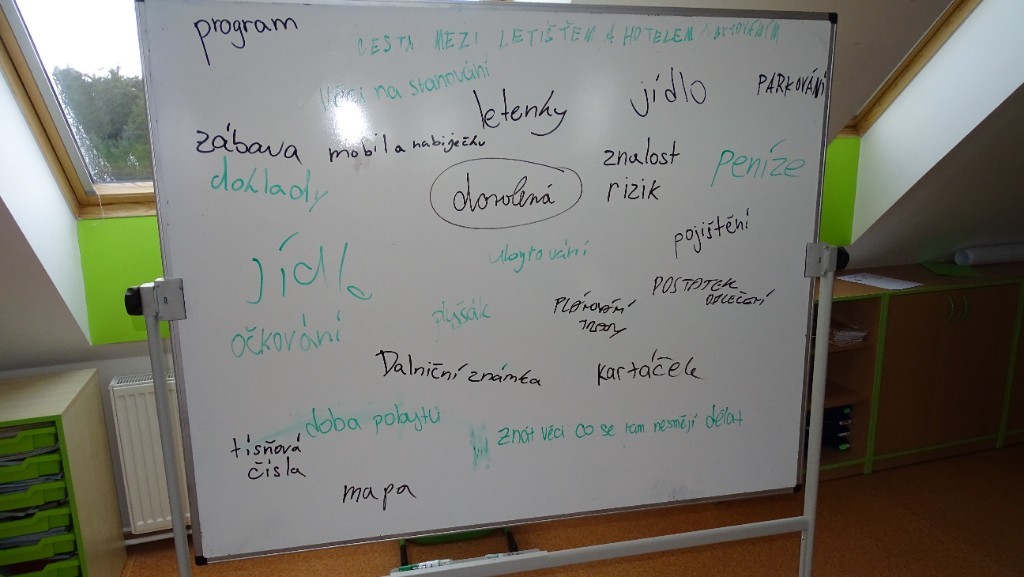 program
CESTA MEZI LETIŠTĚM A HOTELEM
Věci na stanování
letenky
jídlo
PARKOVÁNÍ
zábava
mobil a nabiječku
znalost
rizik
peníze
doklady
dovolená
pojištění
ubytování
jídlo
POSTATEK
OBLEČENÍ
plyšák
PLÁNOVÁNÍ
TRASY
očkování
Dalniční známka
kartáček
doba pobytu
Znát věci co se tam nesmějí dělat
tísňová
čísla
mapa